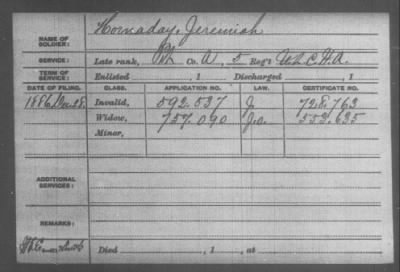 NAME OF SOLDIER: Hornaday, Jeremiah
SERVICE: Late rank, Pt Co. A, 5 Reg't U.S.C.H.A.
TERM OF SERVICE: Enlisted , 1 Discharged , 1
DATE OF FILING. CLASS. APPLICATION NO. LAW. CERTIFICATE NO.
1886, Dec. 28. Invalid, 592.537 J. 728.763
Widow, 757.090 J.o. 553.635
Minor,
ADDITIONAL SERVICES:
REMARKS:
Died , 1 , at